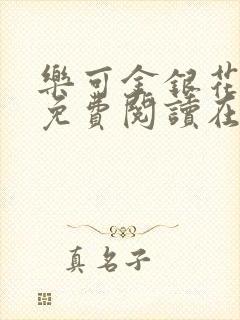 樂可金銀花
免費閱讀在
真名子